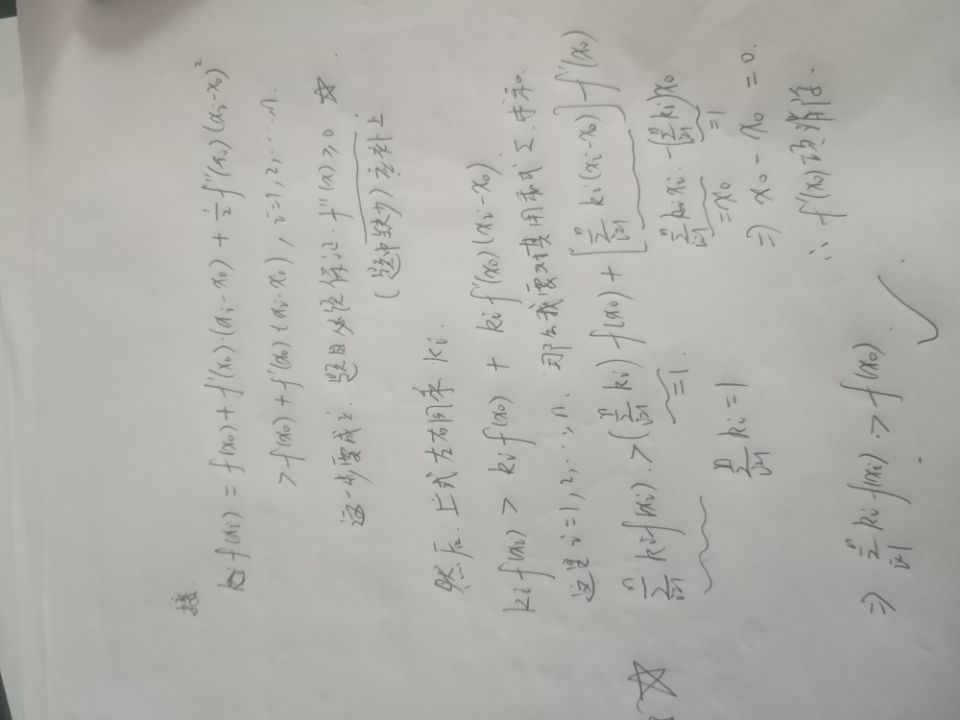 接
f(x_i) = f(x_0) + f'(x_0)·(x_i - x_0) + 1/2 f''(x_0)(x_i - x_0)^2
> f(x_0) + f'(x_0)(x_i - x_0), i=1,2,…,n.
这一步要成立. 题目必须保证. f''(x) ≥ 0 ☆
(题中缺少) 补上
然后. 上式左右同乘 k_i.
k_i f(x_i) > k_i f(x_0) + k_i f'(x_0)(x_i - x_0)
这里 i=1,2,…,n. 那么我要对其用和式 Σ 表示.
☆ ∑_{i=1}^n k_i f(x_i) > (∑_{i=1}^n k_i) f(x_0) + [∑_{i=1}^n k_i(x_i - x_0)] f'(x_0)
=1
∑_{i=1}^n k_i x_i - (∑_{i=1}^n k_i) x_0
= x_0 =1
∑_{i=1}^n k_i = 1
⇒ x_0 - x_0 = 0.
∴ f'(x_0) 项消掉.
⇒ ∑_{i=1}^n k_i f(x_i) > f(x_0)